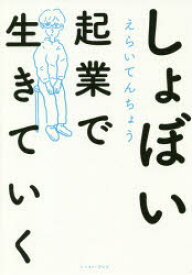 しょぼい
起業で
生きていく
えらいてんちょう
イースト・プレス